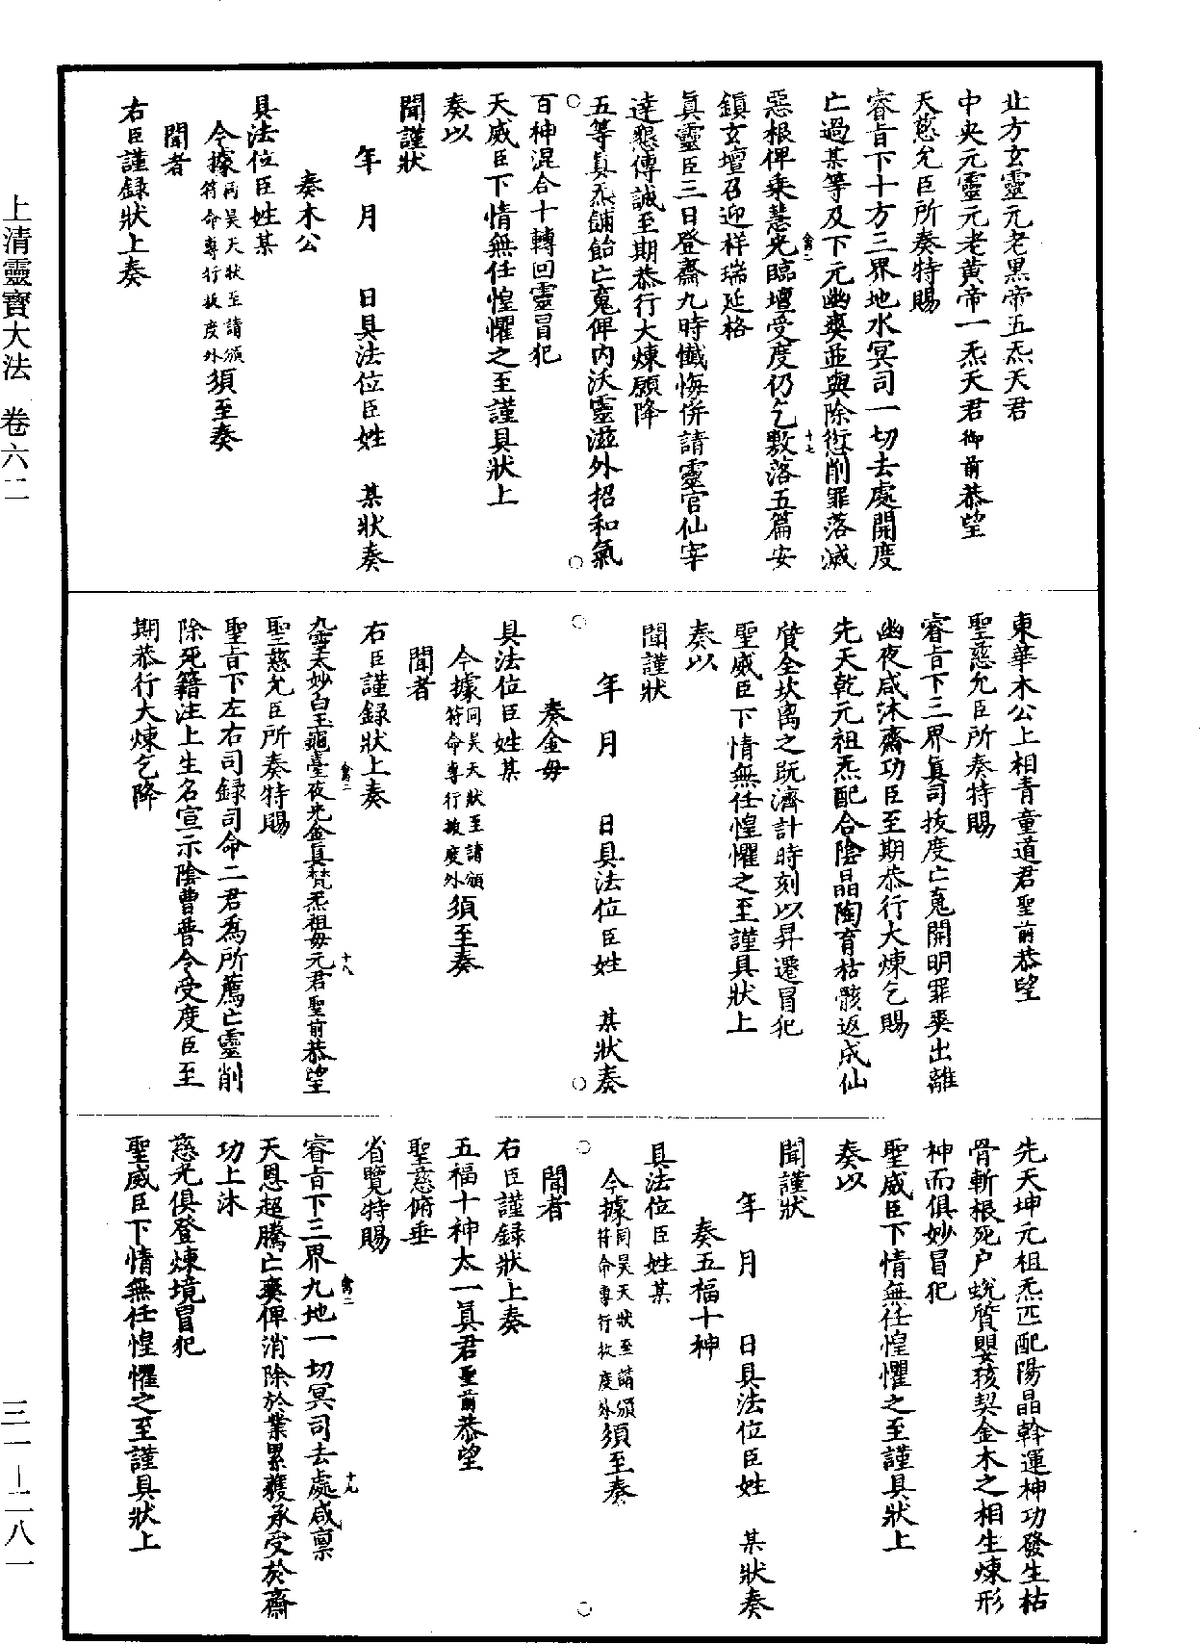 北方玄靈元老黑帝五炁天君
中央元靈元老黃帝一炁天君御前恭望
天慈允臣所奏特賜
睿旨下十方三界地水冥司一切去處開度
亡過某等及下元幽爽並與除愆削罪落滅
惡根俾乘慧光臨壇受度仍乞敷落五篇安
鎮玄壇召迎祥瑞延格
真靈臣三日登齋九時懺悔併請靈官仙宰
達懇傳誠至期恭行大煉願降
五等真炁餔飴亡𩲸俾內沃靈滋外招和氣
百神混合十轉回靈冒犯
天威臣下情無任惶懼之至謹具狀上
奏以
聞謹狀
年 月 日具法位臣姓 某狀奏
奏木公
具法位臣姓某
今據同昊天狀至請頒符命專行拔度外須至奏
聞者
右臣謹錄狀上奏
東華木公上相青童道君聖前恭望
聖慈允臣所奏特賜
睿旨下三界真司拔度亡𩲸開明罪爽出離
幽夜咸沐齋功臣至期恭行大煉乞賜
先天乾元祖炁配合陰晶陶育枯骸返成仙
質全坎离之既濟計時刻以昇遷冒犯
聖威臣下情無任惶懼之至謹具狀上
奏以
聞謹狀
年 月 日具法位臣姓 某狀奏
奏金母
具法位臣姓某
今據同昊天狀至請頒符命專行拔度外須至奏
聞者
右臣謹錄狀上奏
九靈太妙白玉龜臺夜光金真梵炁祖母元君聖前恭望
聖慈允臣所奏特賜
聖旨下左右司錄司命二君為所薦亡靈削
除死籍注上生名宣示陰曹普令受度臣至
期恭行大煉乞降
先天坤元祖炁匹配陽晶斡運神功發生枯
骨斬根死户蛻質嬰孩契金木之相生煉形
神而俱妙冒犯
聖威臣下情無任惶懼之至謹具狀上
奏以
聞謹狀
年 月 日具法位臣姓 某狀奏
奏五福十神
具法位臣姓某
今據同昊天狀至請頒符命專行拔度外須至奏
聞者
右臣謹錄狀上奏
五福十神太一真君聖前恭望
聖慈俯垂
省覽特賜
睿旨下三界九地一切冥司去處咸禀
天恩超騰亡爽俾消除於業累獲承受於齋
功上沐
慈光俱登煉境冒犯
聖威臣下情無任惶懼之至謹具狀上
上清靈寶大法 卷六二
三一—二八一